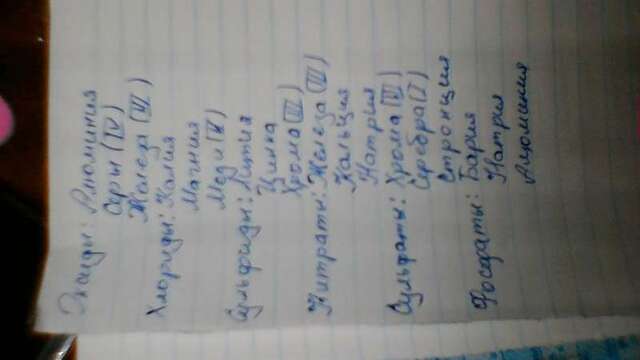 Оксиды: Алюминия
Серы (IV)
Железа (III)
Хлориды: Калия
Магния
Меди (II)
Сульфиды: Лития
Цинка
Хрома (III)
Нитраты: Железа (III)
Кальция
Натрия
Сульфаты: Хрома (III)
Серебра (I)
Стронция
Фосфаты: Бария
Натрия
Алюминия